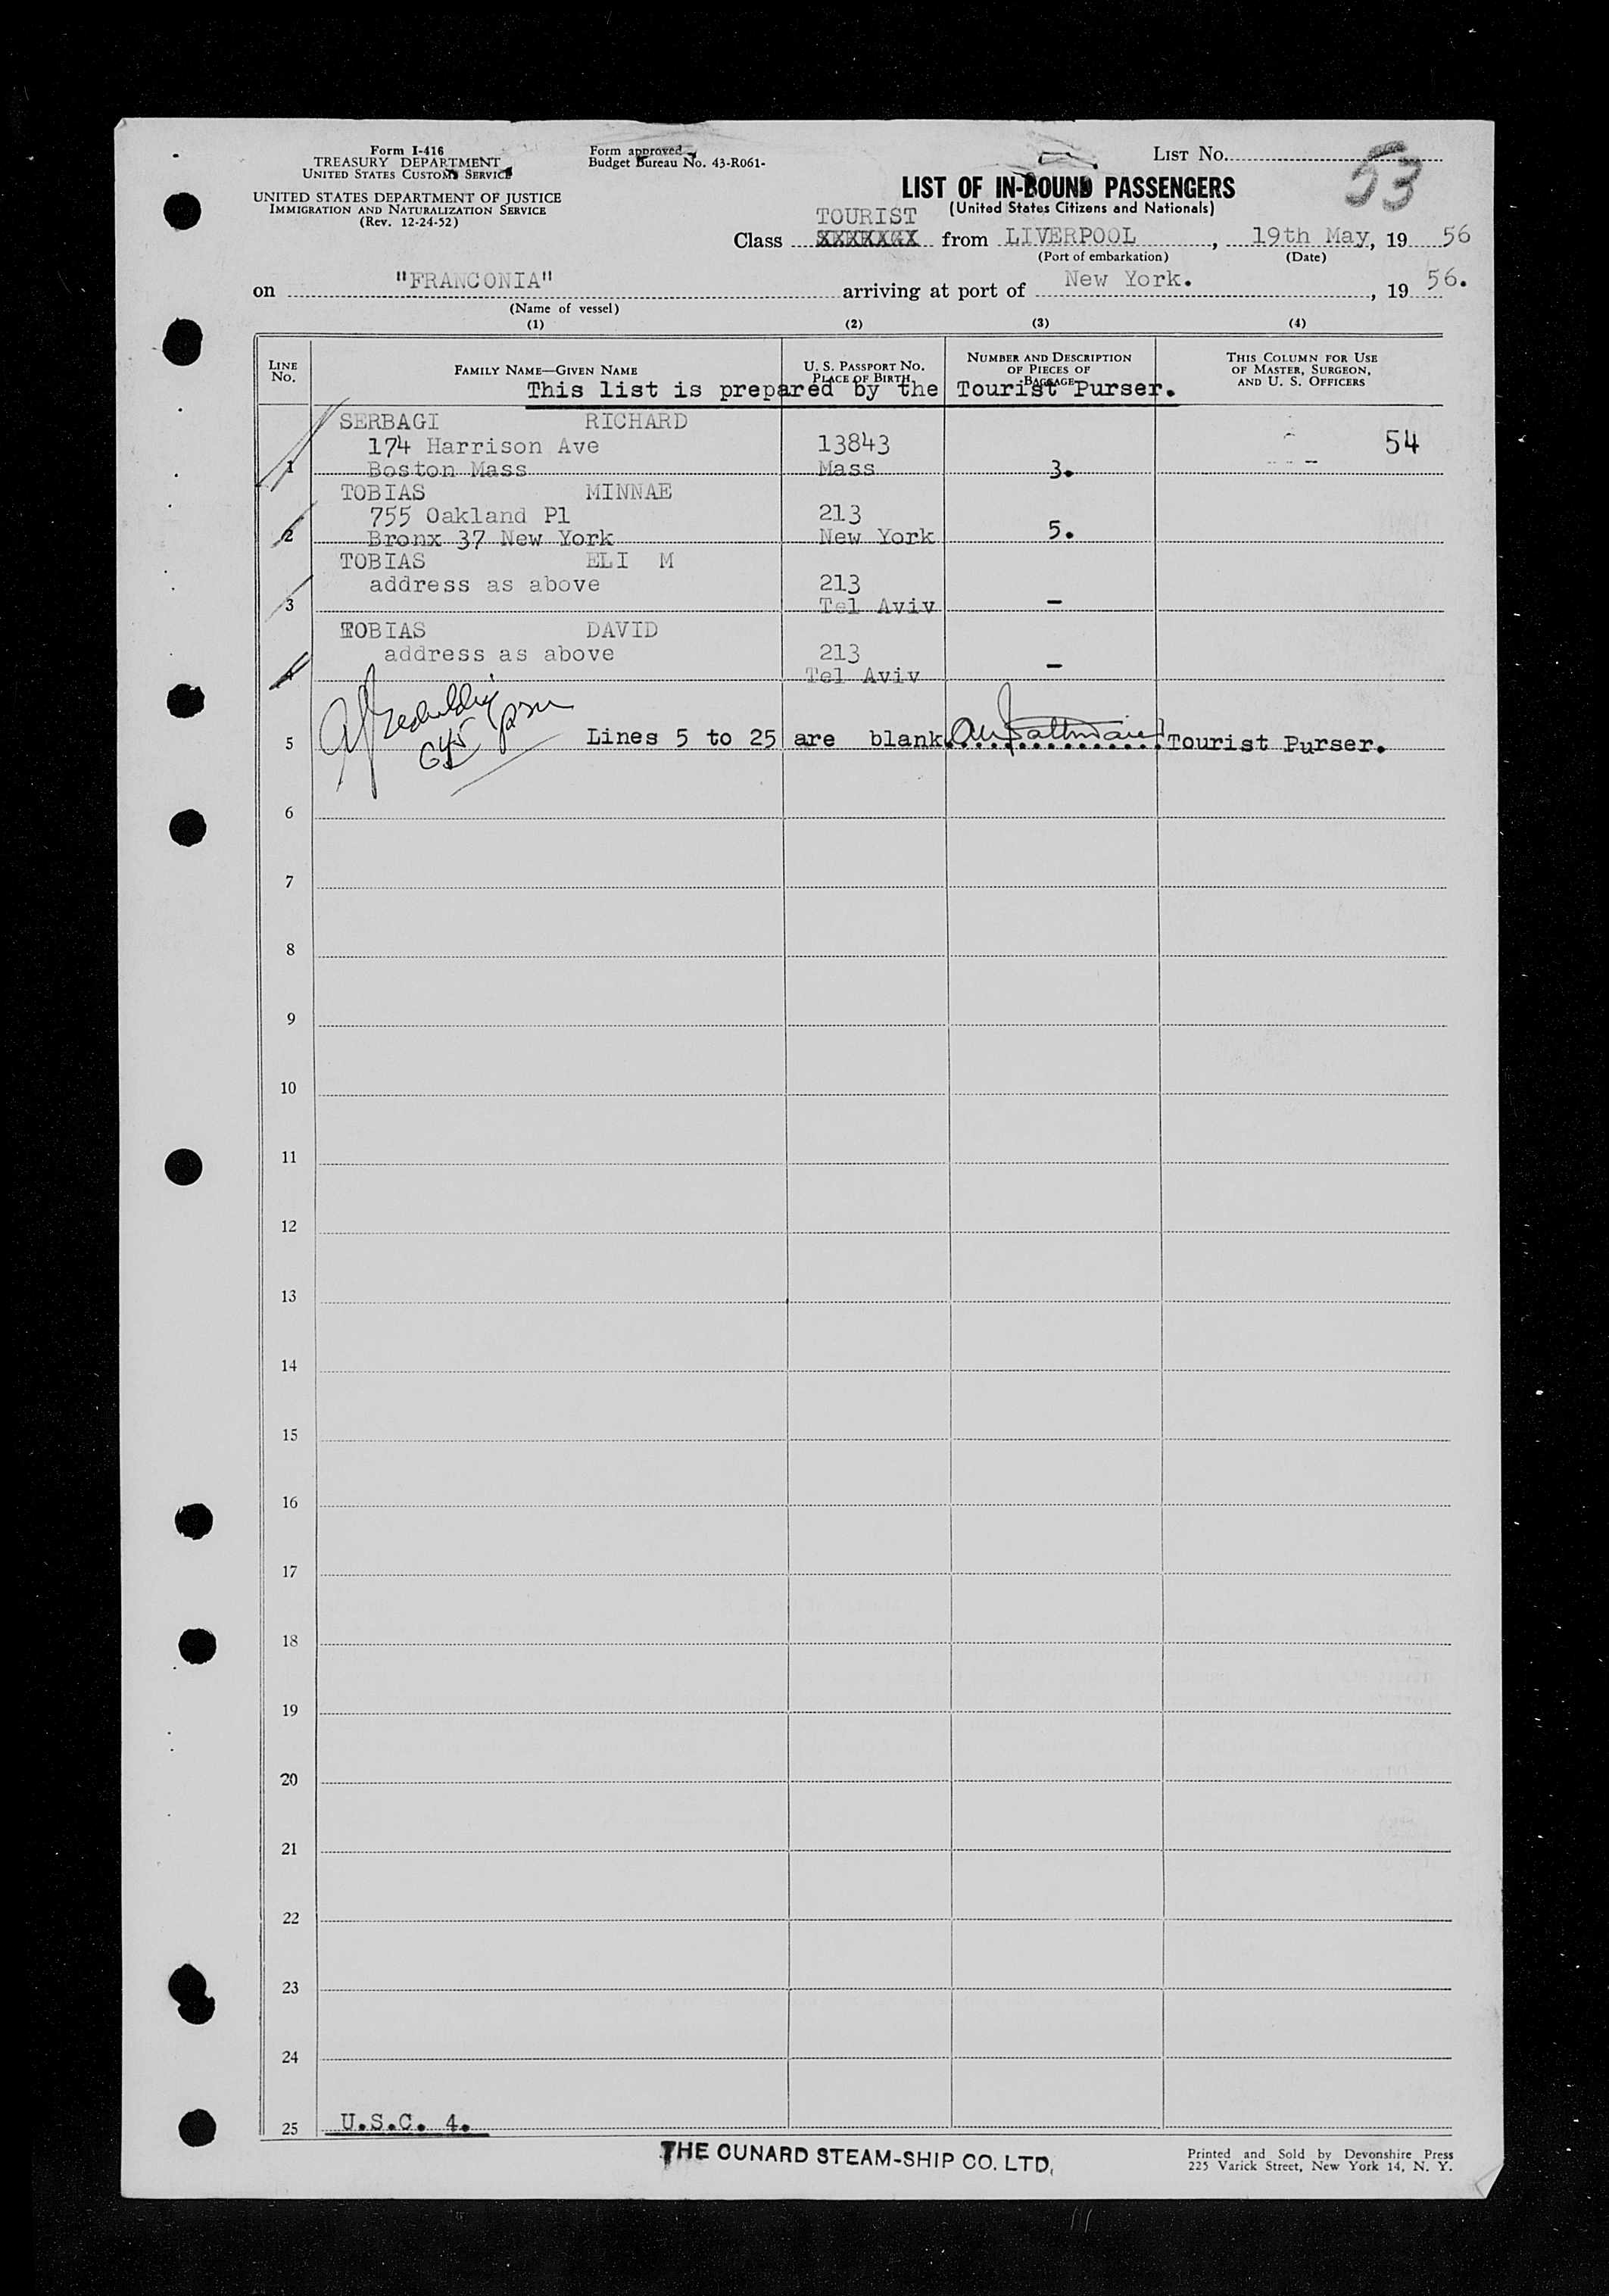 Form I-416
TREASURY DEPARTMENT
UNITED STATES CUSTOMS SERVICE
UNITED STATES DEPARTMENT OF JUSTICE
IMMIGRATION AND NATURALIZATION SERVICE
(Rev. 12-24-52)
Form approved
Budget Bureau No. 43-R061-
LIST NO. 53
LIST OF IN-BOUND PASSENGERS
(United States Citizens and Nationals)
TOURIST
Class from LIVERPOOL, 19th May, 19 56
(Port of embarkation) (Date)
on "FRANCONIA" arriving at port of New York. , 19 56.
(Name of vessel)
(1) (2) (3) (4)
LINE NO. FAMILY NAME—GIVEN NAME U. S. PASSPORT NO. PLACE OF BIRTH NUMBER AND DESCRIPTION OF PIECES OF BAGGAGE THIS COLUMN FOR USE OF MASTER, SURGEON, AND U. S. OFFICERS
This list is prepared by the Tourist Purser.
SERBAGI RICHARD
174 Harrison Ave 13843 54
1 Boston Mass Mass 3.
TOBIAS MINNAE
755 Oakland Pl 213
2 Bronx 37 New York New York 5.
TOBIAS ELI M
address as above 213
3 Tel Aviv –
TOBIAS DAVID
address as above 213
4 Tel Aviv –
5 Lines 5 to 25 are blank. Tourist Purser.
6
7
8
9
10
11
12
13
14
15
16
17
18
19
20
21
22
23
24
25 U.S.C. 4.
THE CUNARD STEAM-SHIP CO. LTD.
Printed and Sold by Devonshire Press
225 Varick Street, New York 14, N. Y.